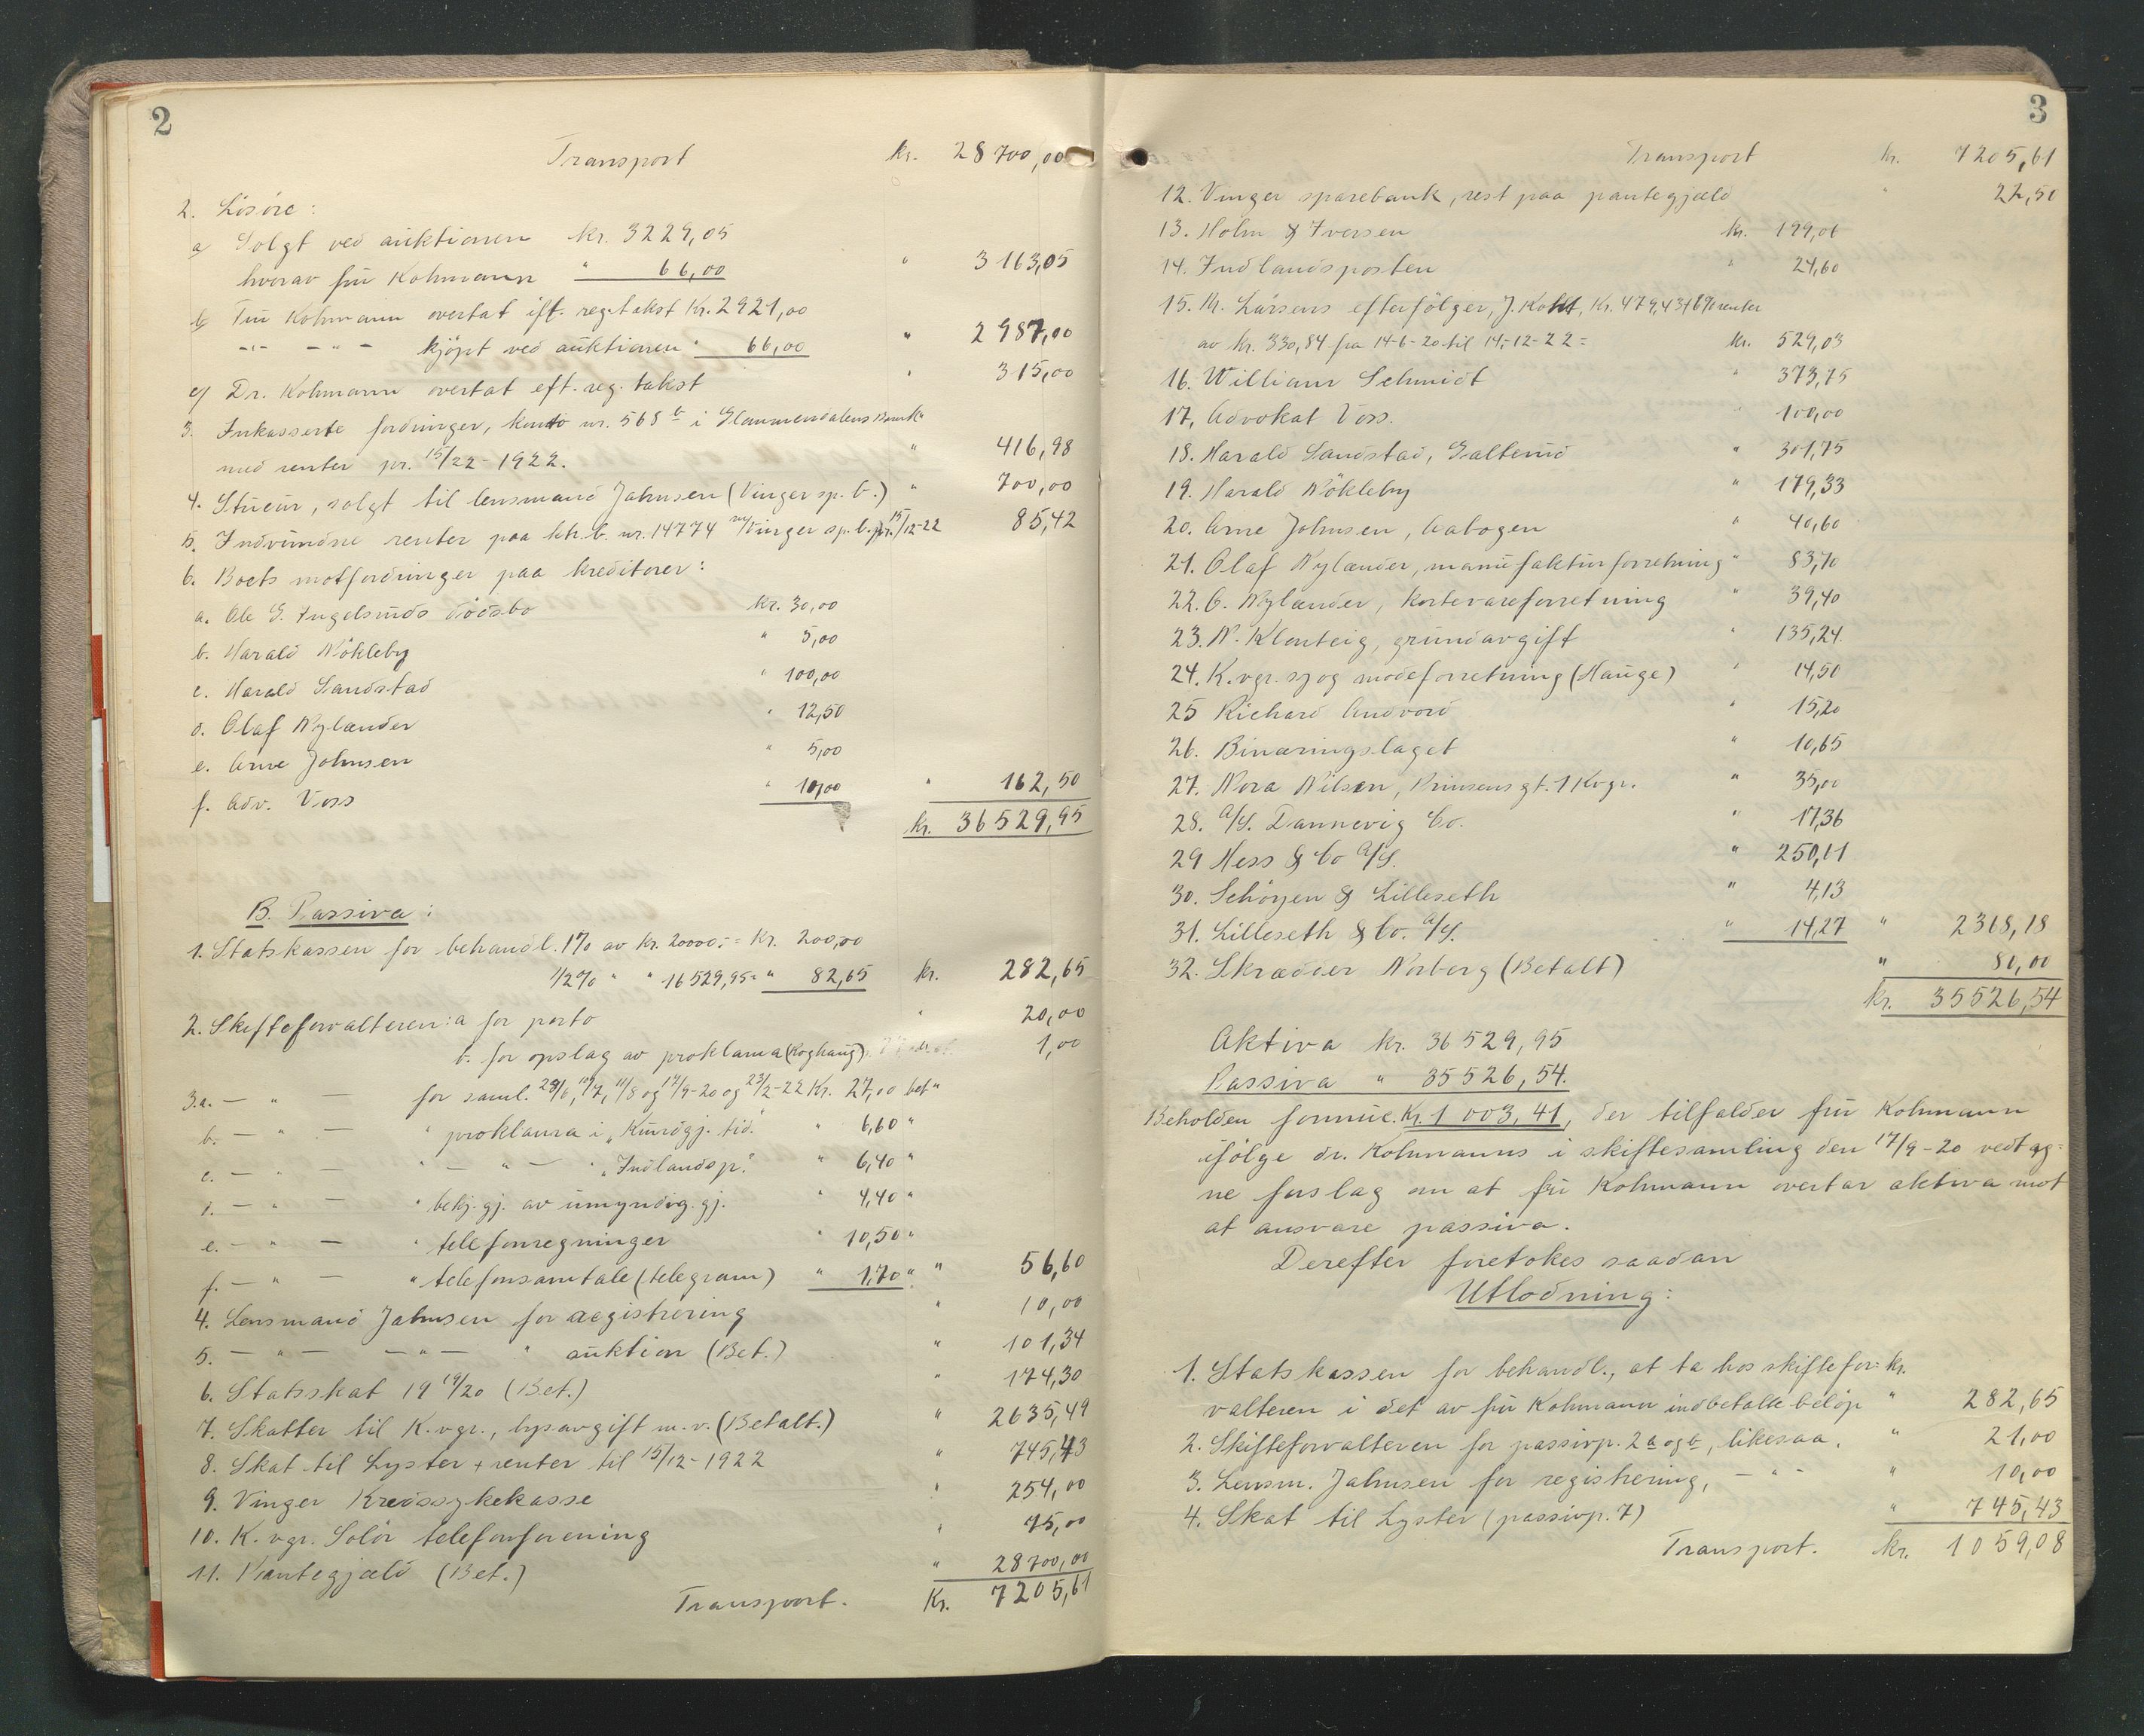 2
Transport kr. 28700,00
2. Lösöre:
a Solgt ved auktionen kr. 3229,05
hvorav frü Kohmann " 66,00 " 3163,05
b Frü Kohmann overtat ift. reg.takst Kr. 2921,00
-"- -"- kjöpt ved auktionen " 66,00 " 2987,00
c) Dr. Kohmann overtat eft. reg. takst " 315,00
3. Inkasserte fordringer, konto nr. 568 b i Glommendalens Bank
med renter pr. 15/22-1922. " 416,98
4. Stueur, solgt til lensmand Jahnsen (Vinger sp. b.) " 700,00
5. Indvundne renter paa ktr. b. nr. 14774 Vinger sp. b. pr. 15/12-22 85,42
6. Boets motfordringer paa kreditorer:
a. Ole G. Ingelsruds dödsbo kr. 30,00
b. Harald Nökleby " 5,00
c. Harald Sandstad " 100,00
d. Olaf Nylænder " 12,50
e. Arne Johnsen " 5,00
f. Adv. Voss " 10,00 " 162,50
kr. 36529,95
B. Passiva:
1. Statskassen for behandl. 1% av kr. 20000,- = Kr. 200,00
1/2% " " 16529,95 = " 82,65 kr. 282,65
2. Skifteforvalteren: a for porto " 20,00
b. for opslag av proklama (Roghaug) 1,00
3.a. — " — for saml. 28/6, 10/7, 11/8 og 17/9-20 og 23/2-22 Kr. 27,00 bet "
b. — " — " proklama i "Kundgj. tid." " 6,60 "
c. — " — " — " — " "Indlandsp." " 6,40 "
d. — " — " bekj. gj. av umyndig. gj. " 4,40 "
e. — " — " telefonregninger " 10,50 "
f. — " — " telefonsamtale (telegram) " 1,70 " " 56,60
4. Lensmand Jahnsen for registrering " 10,00
5. — " — — " — " auktion (Bet.) " 101,34
6. Statsskat 1919/20 (Bet.) " 174,30
7. Skatter til K.vgr., lysavgift m.v. (Betalt.) " 2635,49
8. Skat til Lyster + renter til 15/12-1922 " 745,43
9. Vinger Kredssykekasse " 254,00
10. K. vgr. Solör telefonforening " 75,00
11. Pantegjæld (Bet.) " 28700,00
Transport. Kr. 7205,61
3
Transport kr. 7205,61
12. Vinger sparebank, rest paa pantegjæld " 22,50
13. Holm & Iversen kr. 199,06
14. Indlandsposten " 24,60
15. M. Larsens efterfölger, J. Kohl, Kr. 479,43 + 6% renter
av kr. 330,84 fra 14-6-20 til 14-12-22 = kr. 529,03
16. William Schmidt " 373,75
17. Advokat Voss. " 100,00
18. Harald Sandstad, Galterud " 301,75
19. Harald Nökleby " 179,33
20. Arne Johnsen, Aabogen " 40,60
21. Olaf Nylænder, manufakturforretning " 83,70
22. C. Nylænder, kortevareforretning " 39,40
23. N. Klouteig, grundavgift " 135,24
24. K.vgr. sy og modeforretning (Hauge) " 14,50
25 Richard Andvord " 15,20
26. Binæringslaget " 10,65
27. Nora Nilsen, Prinsens gt. 1 Kvgr. " 35,00
28. A/S. Dannevig Co. " 17,36
29 Hess & Co A/S. " 250,11
30. Schöyen & Lilleseth " 4,13
31. Lilleseth & Co. A/S. " 14,27 " 2318,18
32. Skrædder Norberg (Betalt) " 80,00
kr. 35526,54
Aktiva kr. 36529,95
Passiva " 35526,54.
Beholden formue. Kr. 1 003,41, der tilfalder frü Kohmann
ifölge dr. Kohmanns i skiftesamling den 17/9-20 vedtag-
ne forslag om at frü Kohmann overtar aktiva mot
at ansvare passiva.
Derefter foretokes saadan
Utlodning:
1. Statskassen for behandl., at ta hos skiftefor- kr.
valteren i det av frü Kohmann indbetalte belöp " 282,65
2. Skifteforvalteren for passivp. 2 a og b, likesaa. " 21,00
3. Lensm. Jahnsen for registrering, — " — " 10,00
4. Skat til Lyster (passivp. 7) " 745,43
Transport. kr. 1059,08